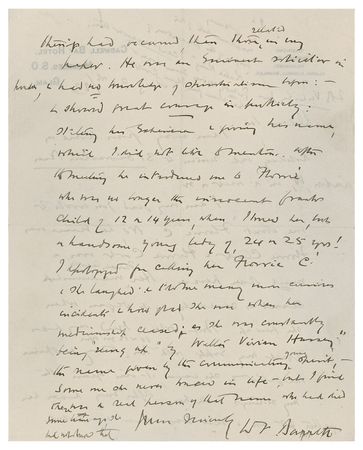 things had occurred, than those, related in my
paper. He was an Eminent solicitor in
& had no knowledge of Spiritualism
& showed great courage in publicly
stating his Experience & giving his name,
which I did not like to mention. After
the meeting he introduced me to "Florrie"
who was no longer the innocent frank
child of 12 or 14 years, when I knew her, but
a handsome young lady of 24 or 25 yrs!
I apologised for calling her Florrie C.
& she laughed & told me many more curious
incidents & how glad she was when her
mediumship ceased, as she was constantly
being "rung up" by "Walter Vivian Hussey"
the name given by the communicating young Spirit! –
Some one she never knew in life – but I find
there was a real person of that name who had died
some
Yours sincerely
W F Barrett